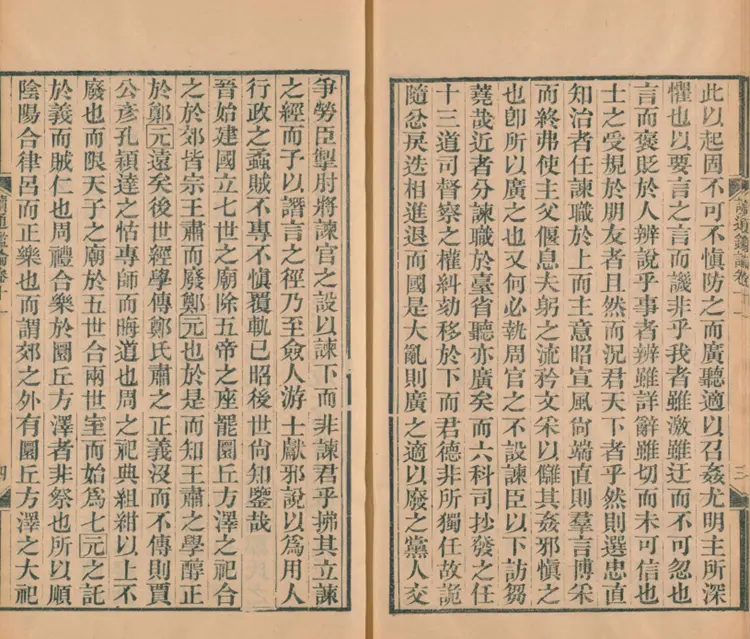 此以起固不可不慎防之而廣聽適以召姦尤明主所深
懼也以要言之言而譏非乎我者雖激雖迂而不可忽也
言而褒貶於人辨說乎事者辨雖詳辭雖切而未可信也
士之受規於朋友者且然而況君天下者乎然則選忠直
知治者任諫職於上而主意昭宣風尙端直則羣言博采
而終弗使主父偃息夫躬之流矜文采以讎其姦邪慎之
也卽所以廣之也又何必執周官之不設諫臣以下訪芻
蕘哉近者分諫職於臺省聽亦廣矣而六科司抄發之任
十三道司督察之權糾劾移於下而君德非所獨任故詭
隨忿戾迭相進退而國是大亂則廣之適以廢之黨人交
讀通鑑論卷十一
三
爭勞臣掣肘將諫官之設以諫下而非諫君乎拂其立諫
之經而予以譖言之徑乃至僉人游士獻邪說以爲用人
行政之蟊賊不專不慎覆軌已昭後世尙知鑒哉
晉始建國立七世之廟除五帝之座罷圜丘方澤之祀合
之於郊皆宗王肅而廢鄭元也於是而知王肅之學醇正
於鄭元遠矣後世經學傳鄭氏肅之正義沒而不傳則賈
公彥孔穎達之怙專師而晦道也周之祀典組紺以上不
廢也而限天子之廟於五世合兩世室而始爲七元之託
於義而賊仁也周禮合樂於圜丘方澤者非祭也所以順
陰陽合律呂而正樂也而謂郊之外有圜丘方澤之大祀
讀通鑑論卷十一
四